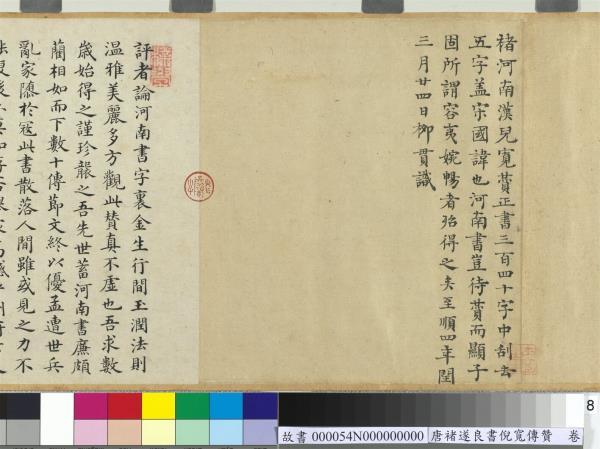 褚河南漢兒寬贊正書三百四十字中刮去
五字蓋宋國諱也河南書豈待贊而顯子
固所謂容夷婉暢者殆得之矣至順四年閏
三月廿四日柳貫識
評者論河南書字裏金生行間玉潤法則
温雅美麗多方觀此贊真不虛也吾求數
歲始得之謹珍襲之吾先世蓄河南書廉頗
藺相如而下數十傳節文終以優孟遭世兵
亂家隳於寇此書散落人間雖或見之力不
8
故書 000054N000000000 唐褚遂良書倪寬傳贊 卷